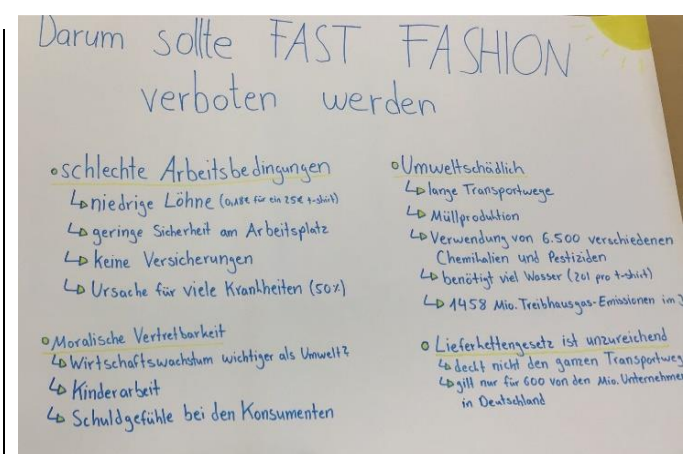 Darum sollte FAST FASHION
verboten werden
schlechte Arbeitsbedingungen
niedrige Löhne (für ein 25€ t-shirt)
geringe Sicherheit am Arbeitsplatz
keine Versicherungen
Ursache für viele Krankheiten (50%)
Moralische Vertretbarkeit
Wirtschaftswachstum wichtiger als Umwelt?
Kinderarbeit
Schuldgefühle bei den Konsumenten
Umweltschädlich
lange Transportwege
Müllproduktion
Verwendung von 6.500 verschiedenen
Chemikalien und Pestiziden
benötigt viel Wasser (20l pro t-shirt)
1458 Mio. Treibhausgas-Emissionen im
Lieferkettengesetz ist unzureichend
deckt nicht den ganzen Transportweg
gilt nur für 600 von den Mio. Unternehmen
in Deutschland